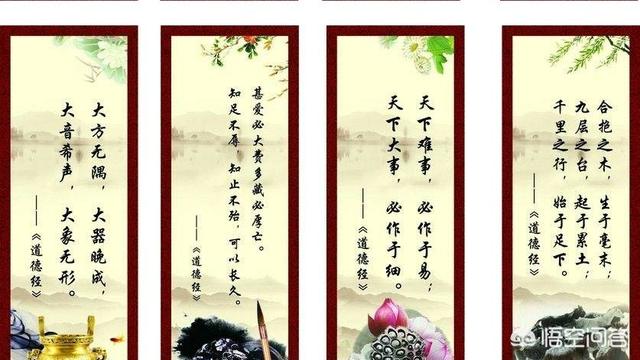 大方无隅，大器晚成，
大音希声，大象无形。
——《道德经》
甚爱必大费多藏必厚亡。
知足不辱，知止不殆，可以长久。
——《道德经》
天下难事，必作于易；
天下大事，必作于细。
——《道德经》
合抱之木，生于毫末；
九层之台，起于累土；
千里之行，始于足下。
——《道德经》
悟空问答